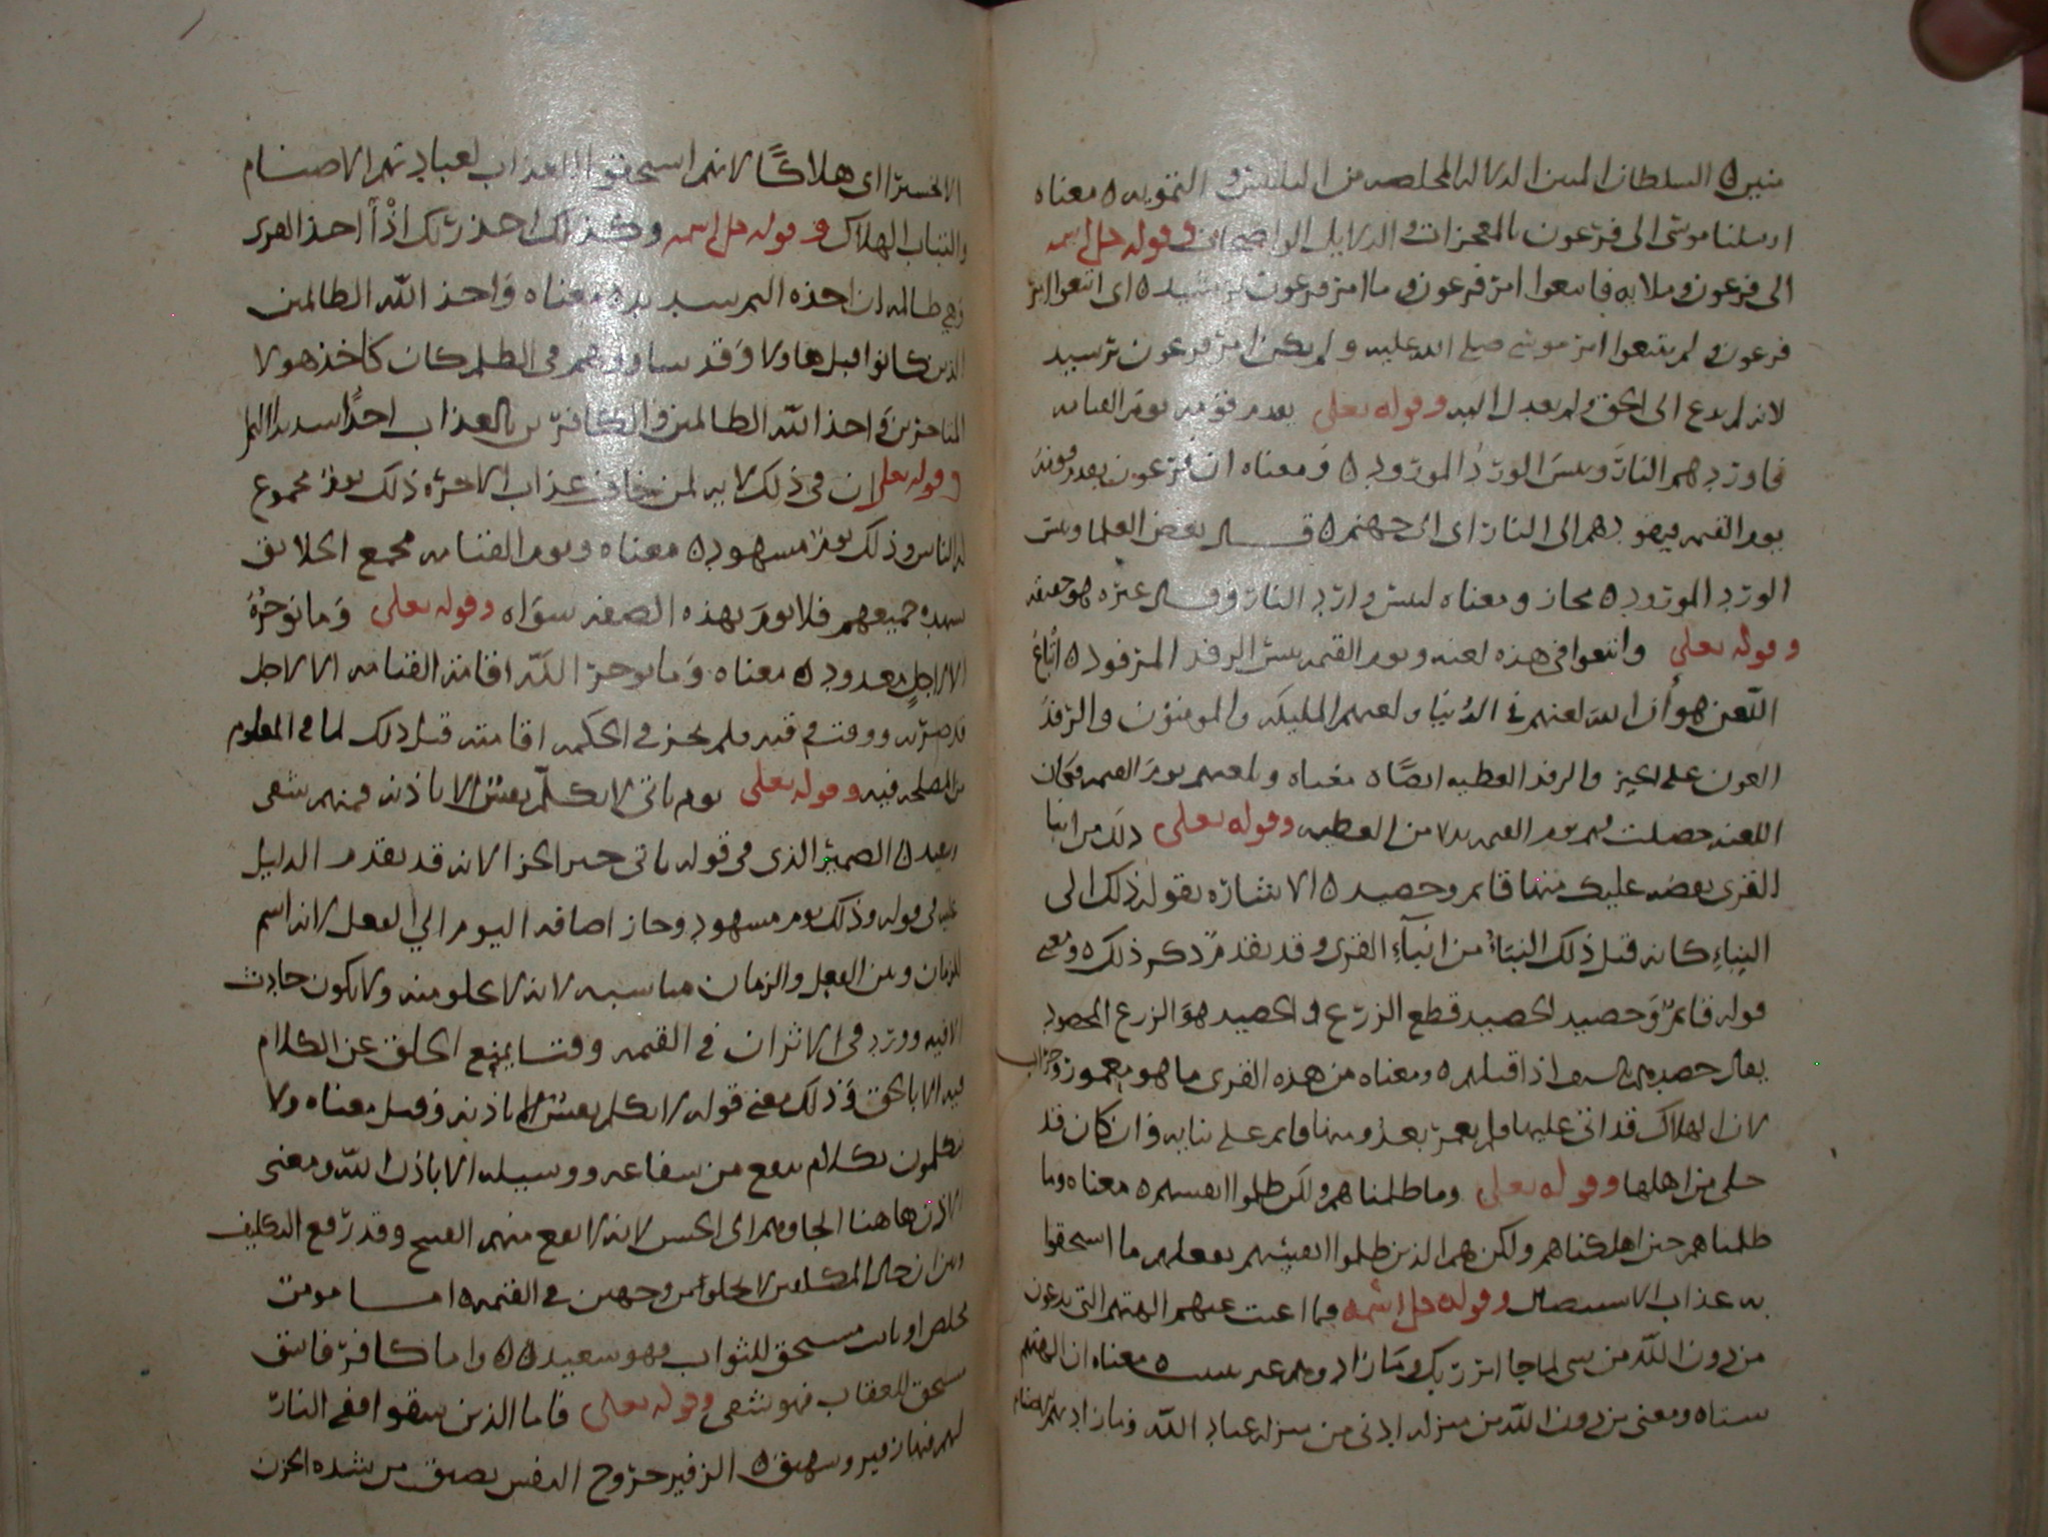 مبين ه السلطان المبين الدلاله المخلصه من التلبيس و التمويه ه معناه
ارسلنا موسى الى فرعون بالمعجزات و الدلايل الواضحات وقوله جل اسمه
الى فرعون و ملايه فاتبعوا امر فرعون و ما امر فرعون برشيد ه اى اتبعوا امر
فرعون و لم يتبعوا امر موسى صلى الله عليه و لم يكن امر فرعون برشيد
لانه لم يدع الى الحق و لم يعدل اليه وقوله تعلى يقدم قومه يوم القيامه
فاوردهم النار وبيس الورد المورود ه ومعناه ان فرعون يقدم قومه
يوم القيمه فيهوى بهم الى النار اى الى جهنم ه قال بعض العلما وبيس
الورد المورود ه مجاز ومعناه ليس وارد النار وقال غيره هو حقيقه
وقوله تعلى واتبعوا فى هذه لعنه ويوم القيمه بيس الرفد المرفود ه اتباع
اللعن هو ان الله لعنهم فى الدنيا ولعنهم المليكه والمومنون والرفد
العون على الخير والرفد العطيه ايضا ه معناه ويلعنهم يوم القيمه فكان
اللعنه حصلت لهم يوم القيمه بدلا من العطيه وقوله تعلى ذلك من انبا
القرى نقصه عليك منها قايم وحصيد ه الاشاره بقوله ذلك الى
النباء كانه قيل ذلك النباء من انبآء القرى وقد تقدم ذكر ذلك ه ومعنى
قوله قايم وحصيد الحصيد قطع الزرع و الحصيد هو الزرع المحصود
يقال حصدهم بالسيف اذا قتلهم ه ومعناه من هذه القرى ما هو معمور وخراب
لان الهلاك قد اتى عليها ولم يعمر بعد ومنها قايم على بنايه وان كان قد
خلى من اهلها وقوله تعلى وما ظلمناهم ولكن ظلموا انفسهم ه معناه وما
ظلمناهم حين اهلكناهم ولكن هم الذين ظلموا انفسهم بفعلهم ما استحقوا
به عذاب الاستيصال وقوله جل اسمه فما اغنت عنهم الهتهم التى يدعون
من دون الله من شى لما جا امر ربك وما زادوهم غير تتبيب ه معناه ان الهتهم
ه ومعنى من دون الله من منزله ادنى من منزله عباد الله وما زادتهم الاصنام
الا تخسيرا اى هلاكا لانهم استحقوا العذاب لعبادتهم الاصنام
والتباب الهلاك وقوله جل اسمه وكذلك اخذ ربك اذا اخذ القرى
وهى ظالمه ان اخذه اليم شديد ه معناه واخذ الله الظالمين
الذين كانوا قبل هاولا وقد ساووهم فى الظلم كان كاخذ هولا
المتاخرين واخذ الله الظالمين والكافرين بالعذاب اخذا شديدا اليم
وقوله تعلى ان فى ذلك لايه لمن خاف عذاب الاخره ذلك يوم مجموع
له الناس وذلك يوم مشهود ه معناه ويوم القيامه مجمع الخلايق
يشهده جميعهم فلا يوم بهذه الصفه سواه وقوله تعلى وما نوخره
الا لاجل معدود ه معناه وما نوخر الله اقامه القيامه الا لاجل
قد ضربه ووقت وقته فلم يجز فى الحكمه اقامته قبل ذلك لما فى المعلوم
من المصلحه فيه وقوله تعلى يوم ياتى لا تكلم نفس الا باذنه فمنهم شقى
وسعيد ه الضمير الذى فى قوله ياتى ضمير الجزا لانه قد تقدم الدليل
عليه فى قوله وذلك يوم مشهود وجاز اضافه اليوم الى الفعل لانه اسم
للزمان وبين الفعل والزمان مناسبه لانه لا يخلو منه ولا يكون حادث
الا فيه وورد فى الاثر ان فى القيمه وقتا يمنع الخلق عن الكلام
فيه الا بالحق وذلك معنى قوله لا تكلم نفس الا باذنه وقيل معناه ولا
يتكلمون بكلام ينفع من شفاعه ووسيله الا باذن الله ومعنى
الاذن هاهنا الجاوهم الى الحسن لانه لا يقع منهم القبيح وقد رفع التكليف
وبين ان حال المكلفين لا يخلو من وجهين فى القيمه ه اما مومن
مخلص او تايب مستحق للثواب فهو سعيد ه ه واما كافر فاسق
مستحق للعقاب فهو شقى وقوله تعلى فاما الذين شقوا ففى النار
لهم فيها زفير وشهيق ه الزفير خروج النفس بضيق من شده الحزن